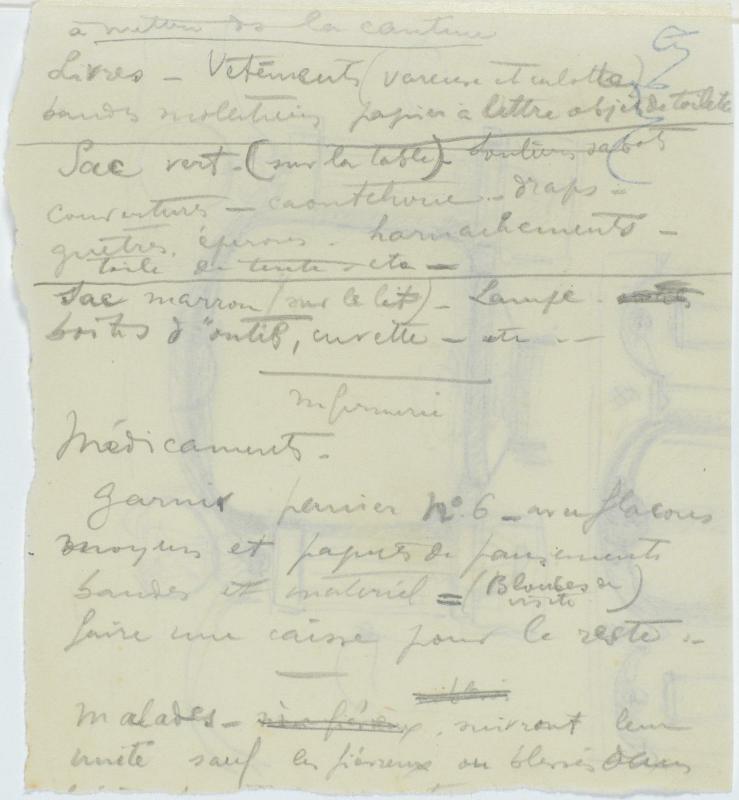 à mettre ds la cantine
Livres - Vêtements (vareuse et culotte)
bandes molletières papier à lettre objet de toilette
Sac vert - (sur la table) - souliers sabots
couvertures - caoutchouc - draps -
guêtres, éperons - harnachements -
toile de tente - etc -
Sac marron (sur le lit) - Lampe -
boites d'outils, cuvette - etc --
Infirmerie
Médicaments -
Garnir panier N° 6 - avec flacons
moyens et paquets de pansements
bandes et matériel = (Blouses de
visite)
faire une caisse pour le reste -
Malades - suivront leur
unité sauf les fiévreux ou blessés dans